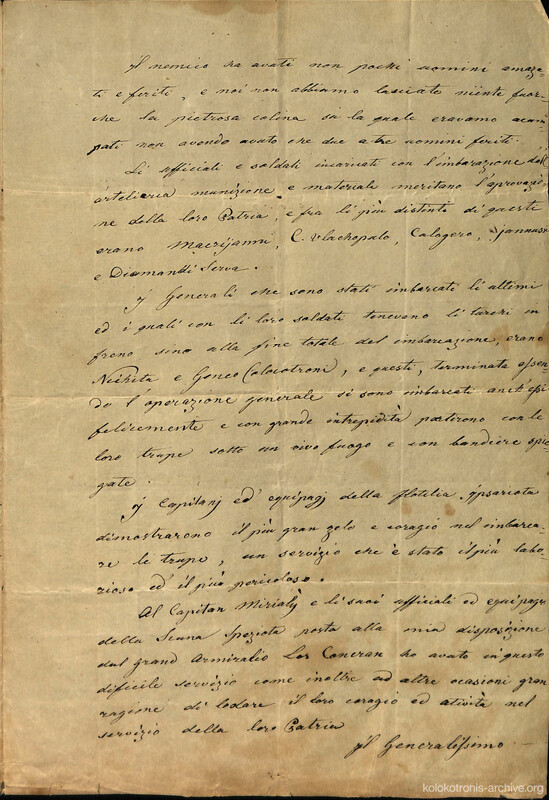 Il nemico ha avuti non pochi uomini amaza-
ti e feriti, e noi non abbiamo lasciato niente fuor-
che la pietrosa colina su la quale eravamo acam-
pati non avendo avuto che due a tre uomini feriti.
Li ufficiali e soldati incaricati con l'imbarazione dell'
arteliaria munizione e materiale meritano l'aprovazio-
ne della loro Patria, e fra li più distinti di questi
erano Macrijanni, C. Vlachopulo, Calogero,
e Diamandi Serva.
I Generali che sono stati imbarcati li ultimi
ed i quali con li loro soldati tenevano li turchi in
freno sino alla fine totale del imbarcazione, erano
Nichita e Geneo Colocotroni, e questi, terminata essen-
do l'operazione generale si sono imbarcati anch'essi
felicemente e con grande intrepidità partirono con le
loro trupe sotto un vivo fuogo e con bandiere spie-
gate.
I Capitanj ed equipagj della flotilia ipsariota
dimostrarono il più gran zelo e coragio nel imbarca-
re le trupe, un servizio che è stato il più labo-
rioso ed il più pericoloso.
Al Capitan Mirialj e li suoi ufficiali ed equipagi
della Scuna Speziota posta alla mia disposizione
dal grand Armiralio Lor Concran ho avuto in questo
dificile servizio come inoltre ad altre ocasioni gran
ragione di lodare il loro coragio ed atività nel
servizio della loro Patria
Il Generalissimo
kolokotronis-archive.org